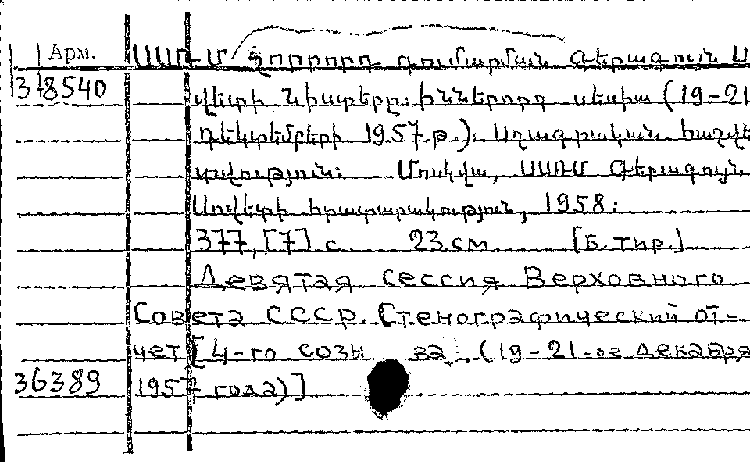 Арм. ՍՍՌՄ չորրորդ գումարման Գերագույն Ս
318540 վետի Նիստերը. իններորդ սեսիա (19-21
դեկտեմբերի 1957 թ.). Սղագրական հաշվե
տվություն: Մոսկվա, ՍՍՌՄ Գերագույն
Սովետի հրատարակություն, 1958:
377, [7] с. 23 см [Б. тир.]
Девятая сессия Верховного
Совета СССР. Стенографический от-
чет [4-го созы ва (19-21-ое декабря
36389 1957 года)]